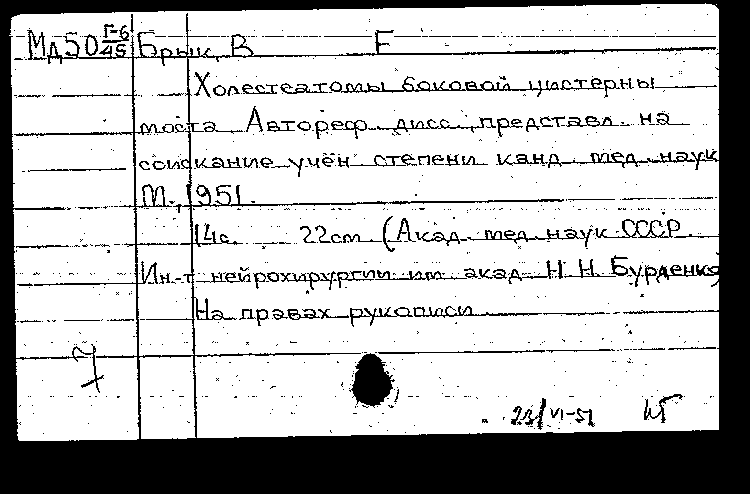 Мд50 Г-6/45 Брык, В Е
Холестеатомы боковой цистерны
моста. Автореф. дисс., представл. на
соискание учён степени канд. мед. наук
М., 1951.
14с. 22см. (Акад. мед. наук СССР.
Ин-т нейрохирургии им. акад. Н. Н. Бурденко)
На правах рукописи
7
23/VI-51